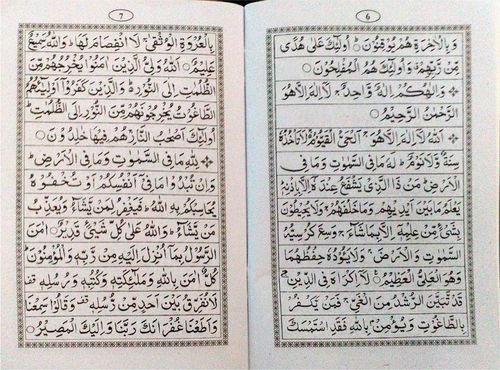 ٦
وَ بِالْاٰخِرَةِ هُمْ يُوْقِنُوْنَ ۝ اُولٰٓئِكَ عَلٰى هُدًى
مِّنْ رَّبِّهِمْ ۗ وَ اُولٰٓئِكَ هُمُ الْمُفْلِحُوْنَ ۝
❖ وَاِلٰهُكُمْ اِلٰهٌ وَّاحِدٌ ۚ لَآ اِلٰهَ اِلَّا هُوَ
الرَّحْمٰنُ الرَّحِيْمُ ۝
❖ اَللّٰهُ لَآ اِلٰهَ اِلَّا هُوَ ۚ اَلْحَيُّ الْقَيُّوْمُ ۚ لَا تَاْخُذُهٗ
سِنَةٌ وَّلَا نَوْمٌ ؕ لَهٗ مَا فِى السَّمٰوٰتِ وَمَا فِى
الْاَرْضِ ؕ مَنْ ذَا الَّذِىْ يَشْفَعُ عِنْدَهٗٓ اِلَّا بِاِذْنِهٖ ؕ
يَعْلَمُ مَا بَيْنَ اَيْدِيْهِمْ وَمَا خَلْفَهُمْ ۚ وَلَا يُحِيْطُوْنَ
بِشَىْءٍ مِّنْ عِلْمِهٖٓ اِلَّا بِمَا شَآءَ ۚ وَسِعَ كُرْسِيُّهُ
السَّمٰوٰتِ وَالْاَرْضَ ۚ وَلَا يَئُوْدُهٗ حِفْظُهُمَا ۚ
وَهُوَ الْعَلِىُّ الْعَظِيْمُ ۝ لَآ اِكْرَاهَ فِى الدِّيْنِ ۙ
قَدْ تَّبَيَّنَ الرُّشْدُ مِنَ الْغَىِّ ۚ فَمَنْ يَّكْفُرْ
بِالطَّاغُوْتِ وَيُؤْمِنْۢ بِاللّٰهِ فَقَدِ اسْتَمْسَكَ
٧
بِالْعُرْوَةِ الْوُثْقٰى ۗ لَا انْفِصَامَ لَهَا ؕ وَاللّٰهُ سَمِيْعٌ
عَلِيْمٌ ۝ اَللّٰهُ وَلِىُّ الَّذِيْنَ اٰمَنُوْا يُخْرِجُهُمْ مِّنَ
الظُّلُمٰتِ اِلَى النُّوْرِ ؕ وَالَّذِيْنَ كَفَرُوْٓا اَوْلِيٰٓئُهُمُ
الطَّاغُوْتُ يُخْرِجُوْنَهُمْ مِّنَ النُّوْرِ اِلَى الظُّلُمٰتِ ؕ
اُولٰٓئِكَ اَصْحٰبُ النَّارِ هُمْ فِيْهَا خٰلِدُوْنَ ۝
❖ لِلّٰهِ مَا فِى السَّمٰوٰتِ وَمَا فِى الْاَرْضِ ؕ
وَاِنْ تُبْدُوْا مَا فِىْٓ اَنْفُسِكُمْ اَوْ تُخْفُوْهُ
يُحَاسِبْكُمْ بِهِ اللّٰهُ ؕ فَيَغْفِرُ لِمَنْ يَّشَآءُ وَيُعَذِّبُ
مَنْ يَّشَآءُ ؕ وَاللّٰهُ عَلٰى كُلِّ شَىْءٍ قَدِيْرٌ ۝ اٰمَنَ
الرَّسُوْلُ بِمَآ اُنْزِلَ اِلَيْهِ مِنْ رَّبِّهٖ وَالْمُؤْمِنُوْنَ ؕ
كُلٌّ اٰمَنَ بِاللّٰهِ وَمَلٰٓئِكَتِهٖ وَكُتُبِهٖ وَرُسُلِهٖ قف
لَا نُفَرِّقُ بَيْنَ اَحَدٍ مِّنْ رُّسُلِهٖ قف وَقَالُوْا سَمِعْنَا
وَاَطَعْنَا غُفْرَانَكَ رَبَّنَا وَاِلَيْكَ الْمَصِيْرُ ۝